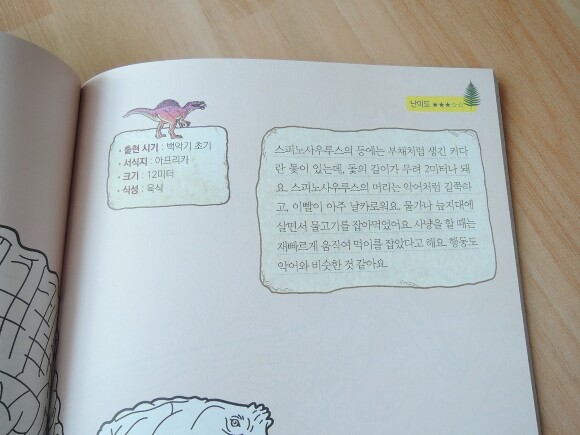 난이도 ★★★☆☆
• 출현 시기 : 백악기 초기
• 서식지 : 아프리카
• 크기 : 12미터
• 식성 : 육식
스피노사우루스의 등에는 부채처럼 생긴 커다
란 돛이 있는데, 돛의 길이가 무려 2미터나 돼
요. 스피노사우루스의 머리는 악어처럼 길쭉하
고, 이빨이 아주 날카로워요. 물가나 늪지대에
살면서 물고기를 잡아먹었어요. 사냥을 할 때는
재빠르게 움직여 먹이를 잡았다고 해요. 행동도
악어와 비슷한 것 같아요.